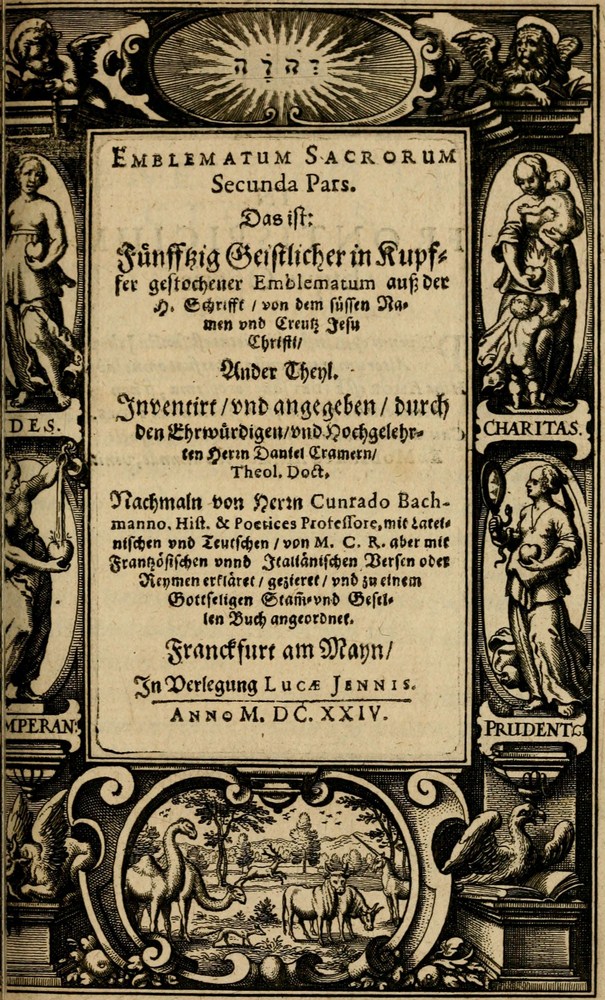 יְהֹוָה
EMBLEMATUM SACRORUM
Secunda Pars.
Das ist:
Fünfftzig Geistlicher in Kupf-
fer gestochener Emblematum auß der
H. Schrifft / von dem süssen Na-
men vnd Creutz Jesu
Christi/
Ander Theyl.
Inventirt / vnd angegeben / durch
den Ehrwürdigen/vnd Hochgelehr-
ten Herrn Daniel Cramern/
Theol. Doct.
Nachmaln von Herrn Cunrado Bach-
manno, Hist. & Poetices Professore, mit Latei-
nischen vnd Teutschen / von M. C. R. aber mit
Frantzösischen vnnd Italiänischen Versen oder
Reymen erkläret / gezieret / vnd zu einem
Gottseligen Stam̃-vnd Gesel-
len Buch angeordnet.
Franckfurt am Mayn/
In Verlegung LUCÆ JENNIS.
ANNO M. DC. XXIV.
DES.
CHARITAS.
MPERAN:
PRUDENT: